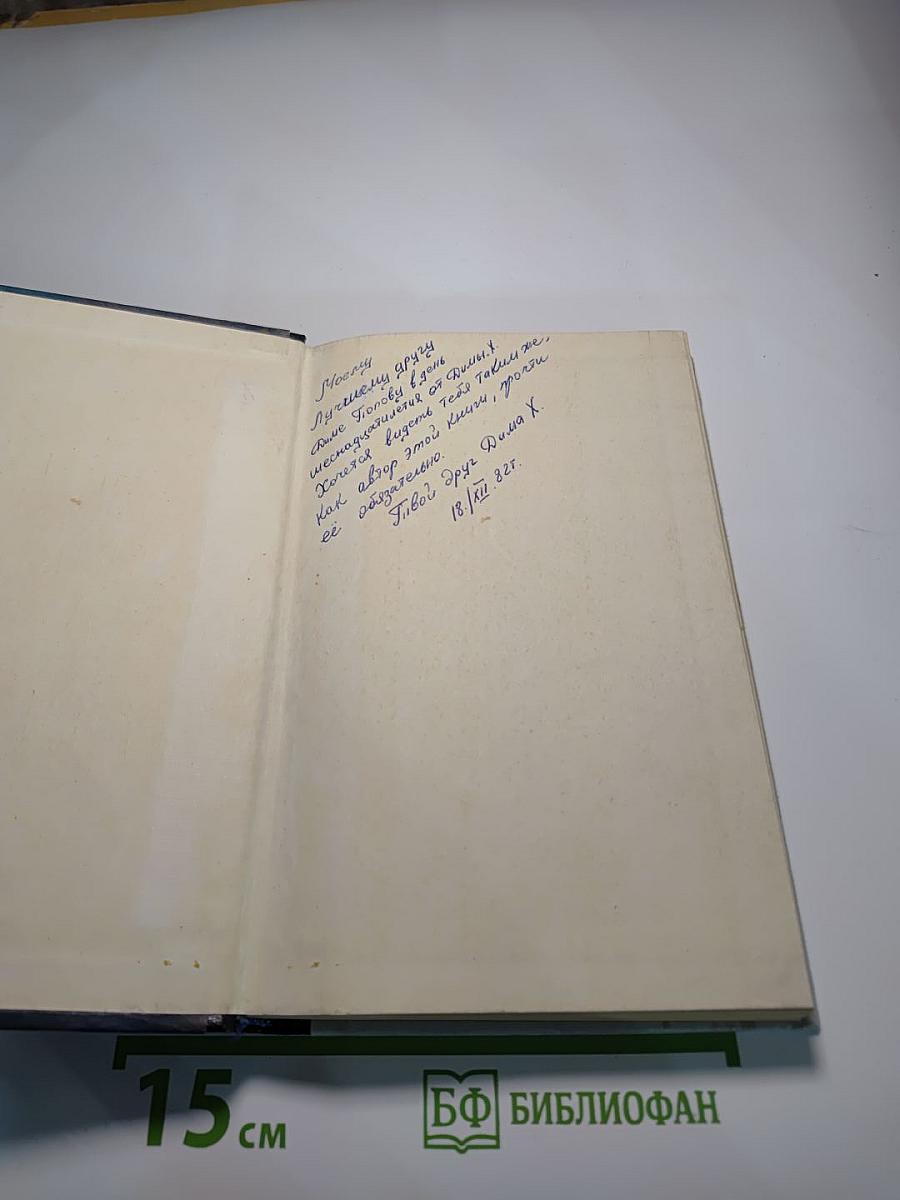 Моему
Лучшему другу
Диме Попову в день
шеснадцатилетия от Димы.Х.
Хочется видеть тебя таким же,
как автор этой книги, прочти
её обязательно.
Твой друг Дима Х.
18./XII.82г.
15 см
БФ БИБЛИОФАН